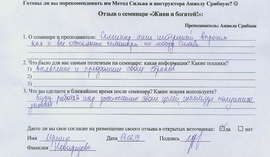 Готовы ли вы порекомендовать им Метод Сильва и инструктора Анжелу Срибную? ☺
Отзыв о семинаре «Живи и богатей!»:
Преподаватель: Анжела Срибная
1. О семинаре и преподавателе: Семинар очень интересный, впрочем
как и все остальные семинары по методу Сильва
2. Что было для вас самым полезным на семинаре: какая информация? Какие техники?
1) выявление и преодоление своих страхов
2)
3)
3. Что вы сделаете в ближайшее время после семинара? Какую идею используете?
Буду работать над достижением своих целей, используя полученные
знания
Даете ли вы свое согласие на размещение своего отзыва в открытых источниках: да нет
Имя Дата Подпись
Фамилия